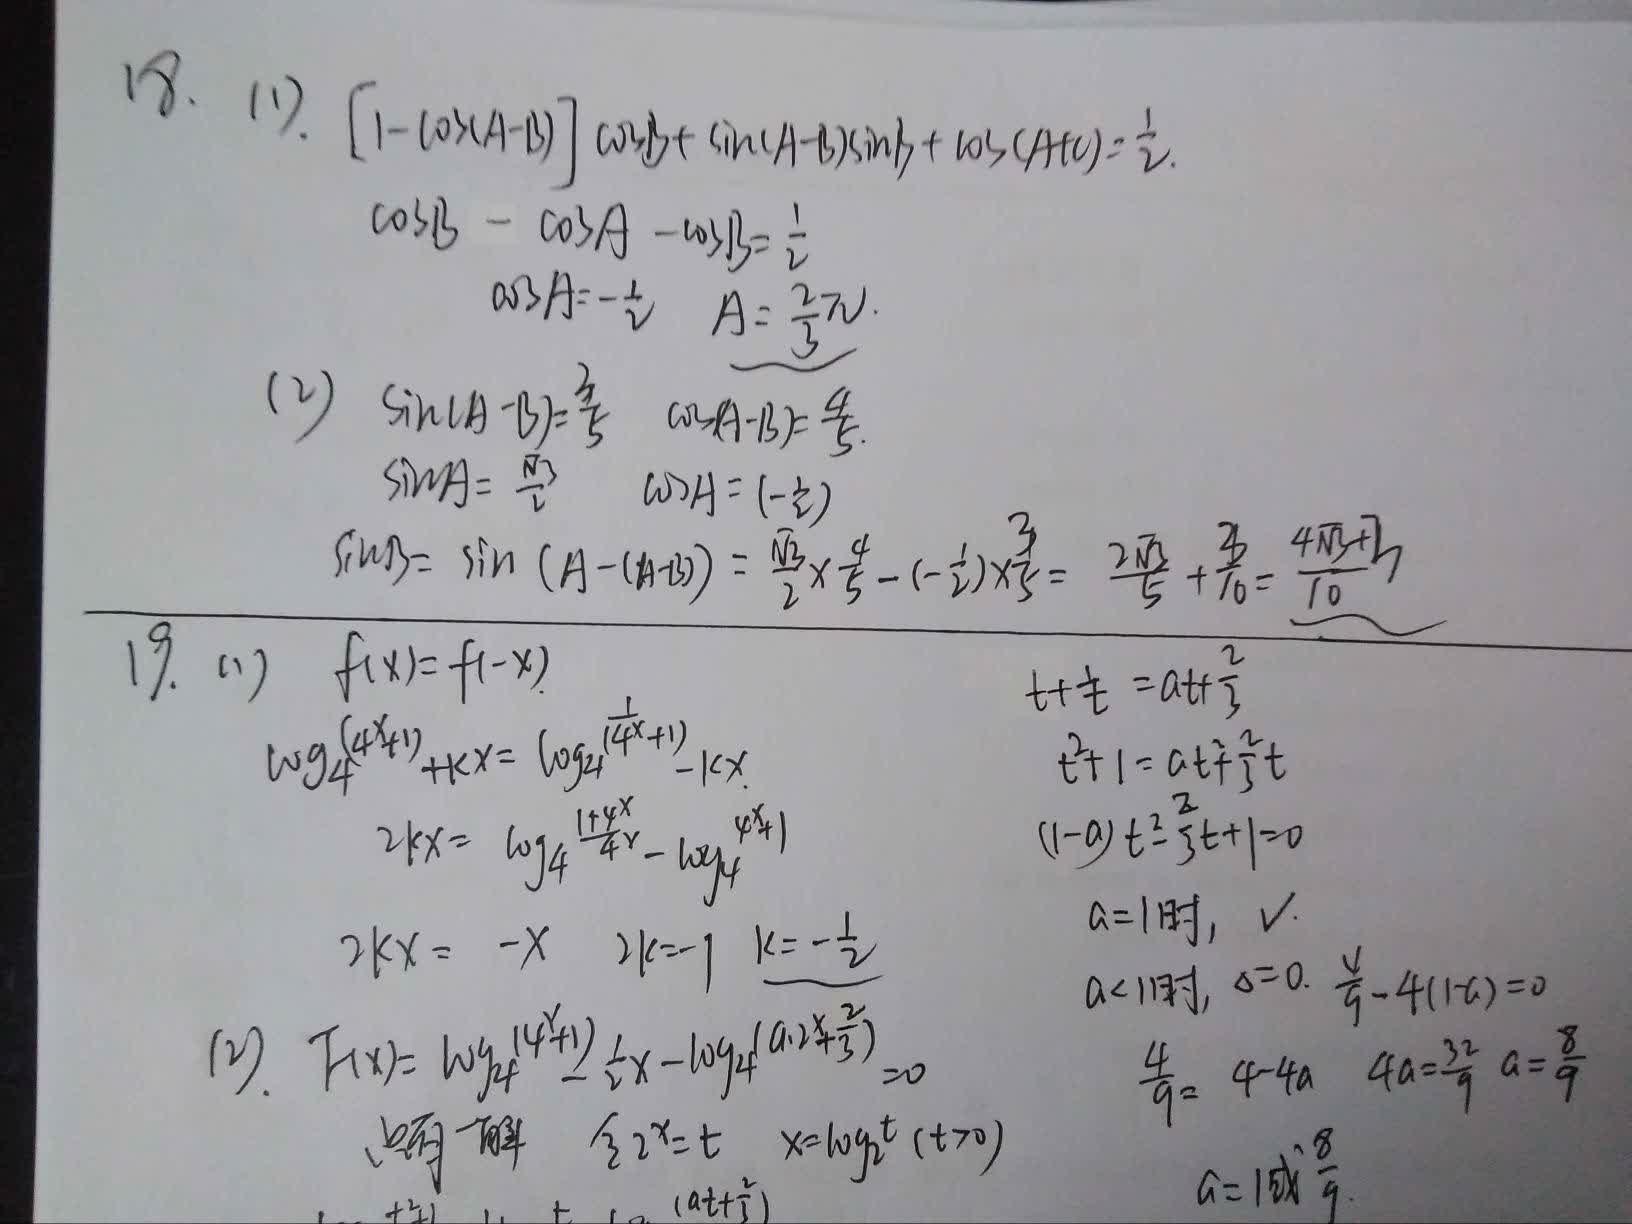 18. (1). [1-cos(A-B)] cosB+ sin(A-B)sinB+cos(A+C)=1/2.
cosB - cosA -cosB=1/2
cosA=-1/2 A=2/3π.
(2) sin(A-B)=3/5 cos(A-B)=4/5.
sinA=√3/2 cosA=(-1/2)
sinB= sin (A-(A-B)) = √3/2×4/5-(-1/2)×3/5= 2√3/5+3/10= 4√3+3/10
19. (1) f(x)=f(-x).
log₄(4ˣ+1)+kx=log₄(1/4ˣ+1)-kx.
2kx= log₄ 1+4ˣ/4ˣ-log₄ 4ˣ+1
2kx= -x 2k=-1 k=-1/2
(2). F(x)=log₄(4ˣ+1)-1/2x-log₄(a·2ˣ+2/3)=0
只有一解 令2ˣ=t x=log₂t (t>0)
(at+2/3)
t+1/t =at+2/3
t²+1=at²+2/3t
(1-a)t²-2/3t+1=0
a=1时, ✓.
a<1时, Δ=0. 4/9-4(1-a)=0
4/9= 4-4a 4a=32/9 a=8/9
a=1或8/9.